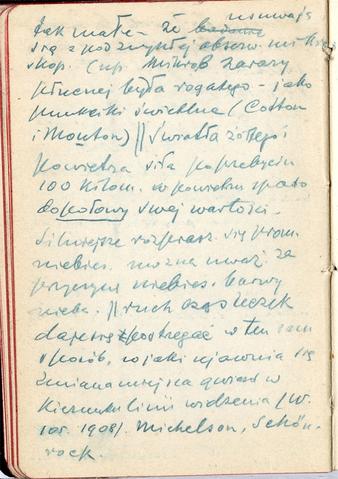 tak małe - że usuwają
się z pod zwykłej obserw. mikro
skop. (np. Mikrob zarazy
płucnej bydła rogatego - jako
punkciki świetlne (Cotton
i Mouton) || Światła żółtego i
powietrza siła po przebyciu
100 kilom. w powietrzu spada
do połowy swej wartości.
Silniejsze rozprasz. się prom.
niebies. można uważ. za
przyczynę niebies. barwy
nieba. || ruch cząsteczek
daje się spostrzegać w ten sam
sposób, w jaki ujawnia się
zmiana miejsca gwiazd w
kierunku linii widzenia (W.
1908). Michelson, Schön-
rock.